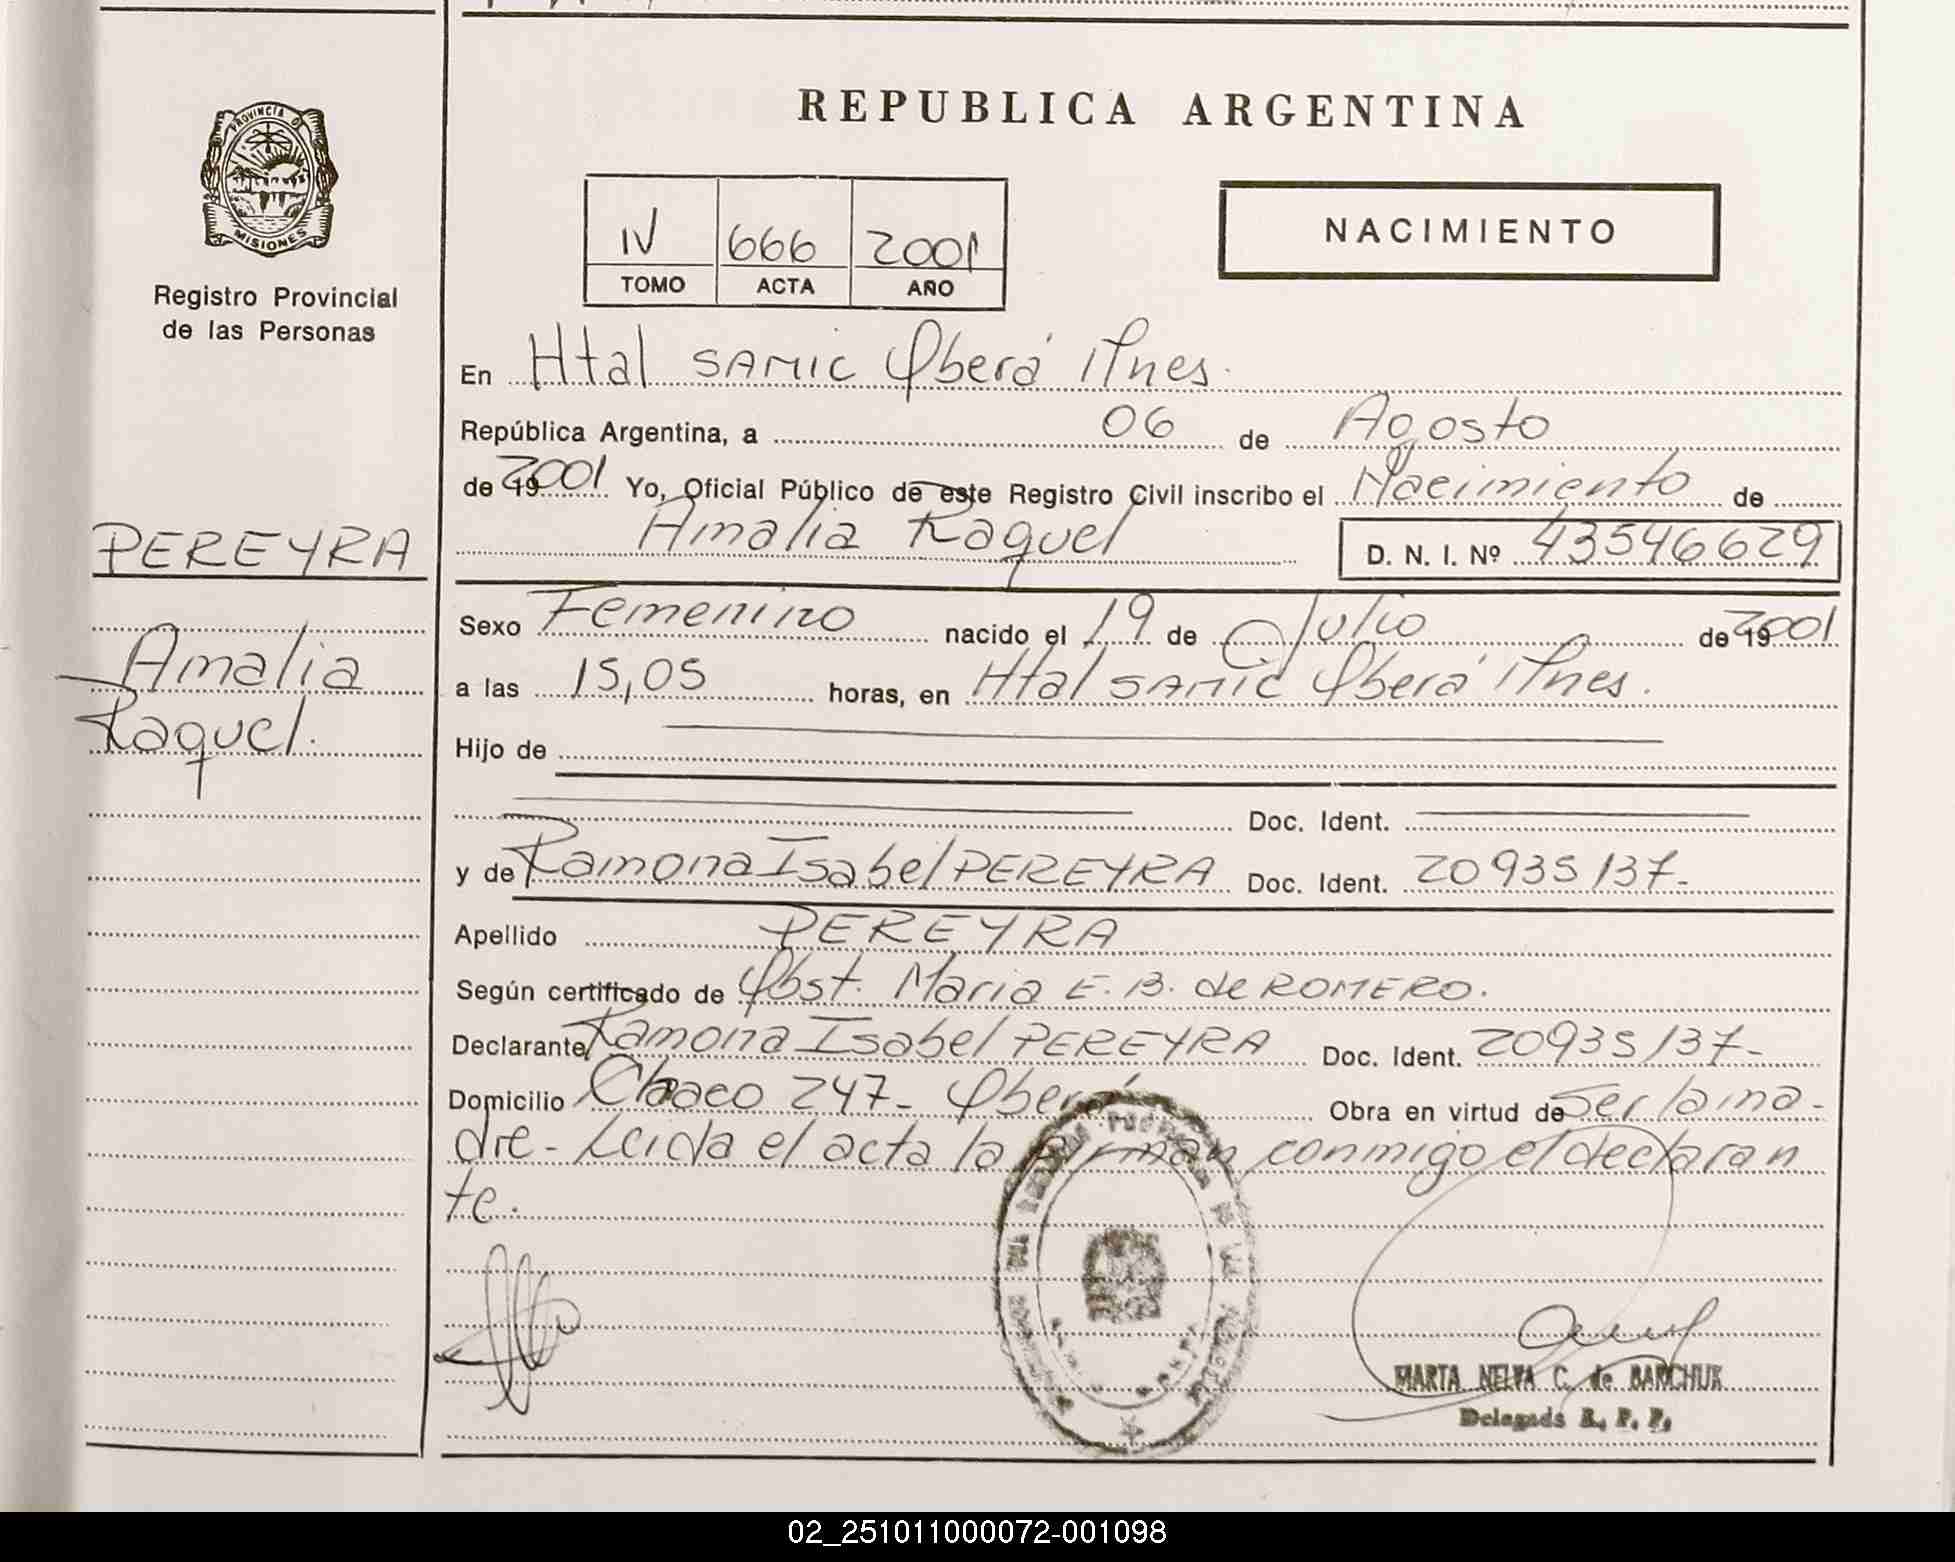 REPUBLICA ARGENTINA
PROVINCIA D
MISIONES
Registro Provincial
de las Personas
IV 666 2001
TOMO ACTA AÑO
NACIMIENTO
En Htal SAMIC Oberá Mnes.
República Argentina, a 06 de Agosto
de 19 2001 Yo, Oficial Público de este Registro Civil inscribo el Nacimiento de
Amalia Raquel D. N. I. Nº 43546629
PEREYRA
Amalia
Raquel.
Sexo Femenino nacido el 19 de Julio de 19 2001
a las 15,05 horas, en Htal SAMIC Oberá Mnes.
Hijo de
Doc. Ident.
y de Ramona Isabel PEREYRA Doc. Ident. 20935137-
Apellido PEREYRA
Según certificado de Obst. Maria E. B. de ROMERO.
Declarante Ramona Isabel PEREYRA Doc. Ident. 20935137-
Domicilio Chaco 247- Oberá Obra en virtud de Ser la ma-
dre- Leida el acta la firman conmigo el declaran
te.
MARTA NELVA C. de BARCHUK
Delegada R. P. P.
02_251011000072-001098